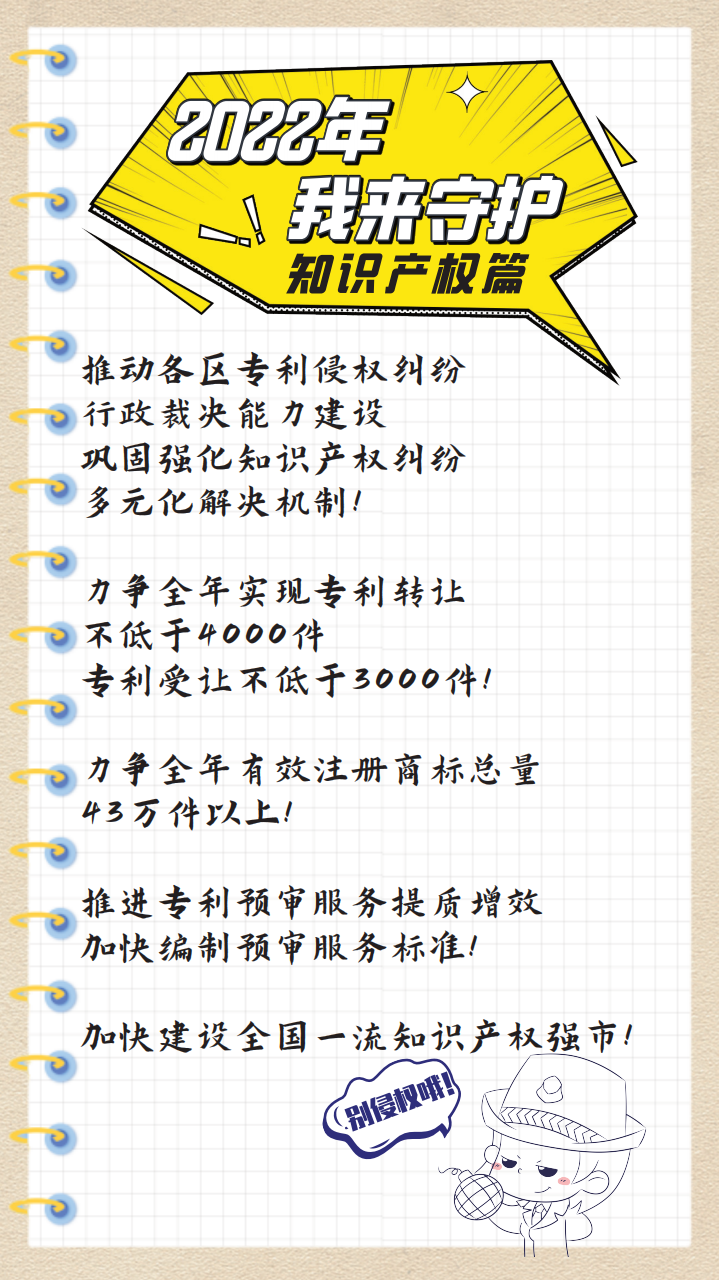 2022年
我来守护
知识产权篇
推动各区专利侵权纠纷
行政裁决能力建设
巩固强化知识产权纠纷
多元化解决机制!
力争全年实现专利转让
不低于4000件
专利受让不低于3000件!
力争全年有效注册商标总量
43万件以上!
推进专利预审服务提质增效
加快编制预审服务标准!
加快建设全国一流知识产权强市!
别侵权哦!